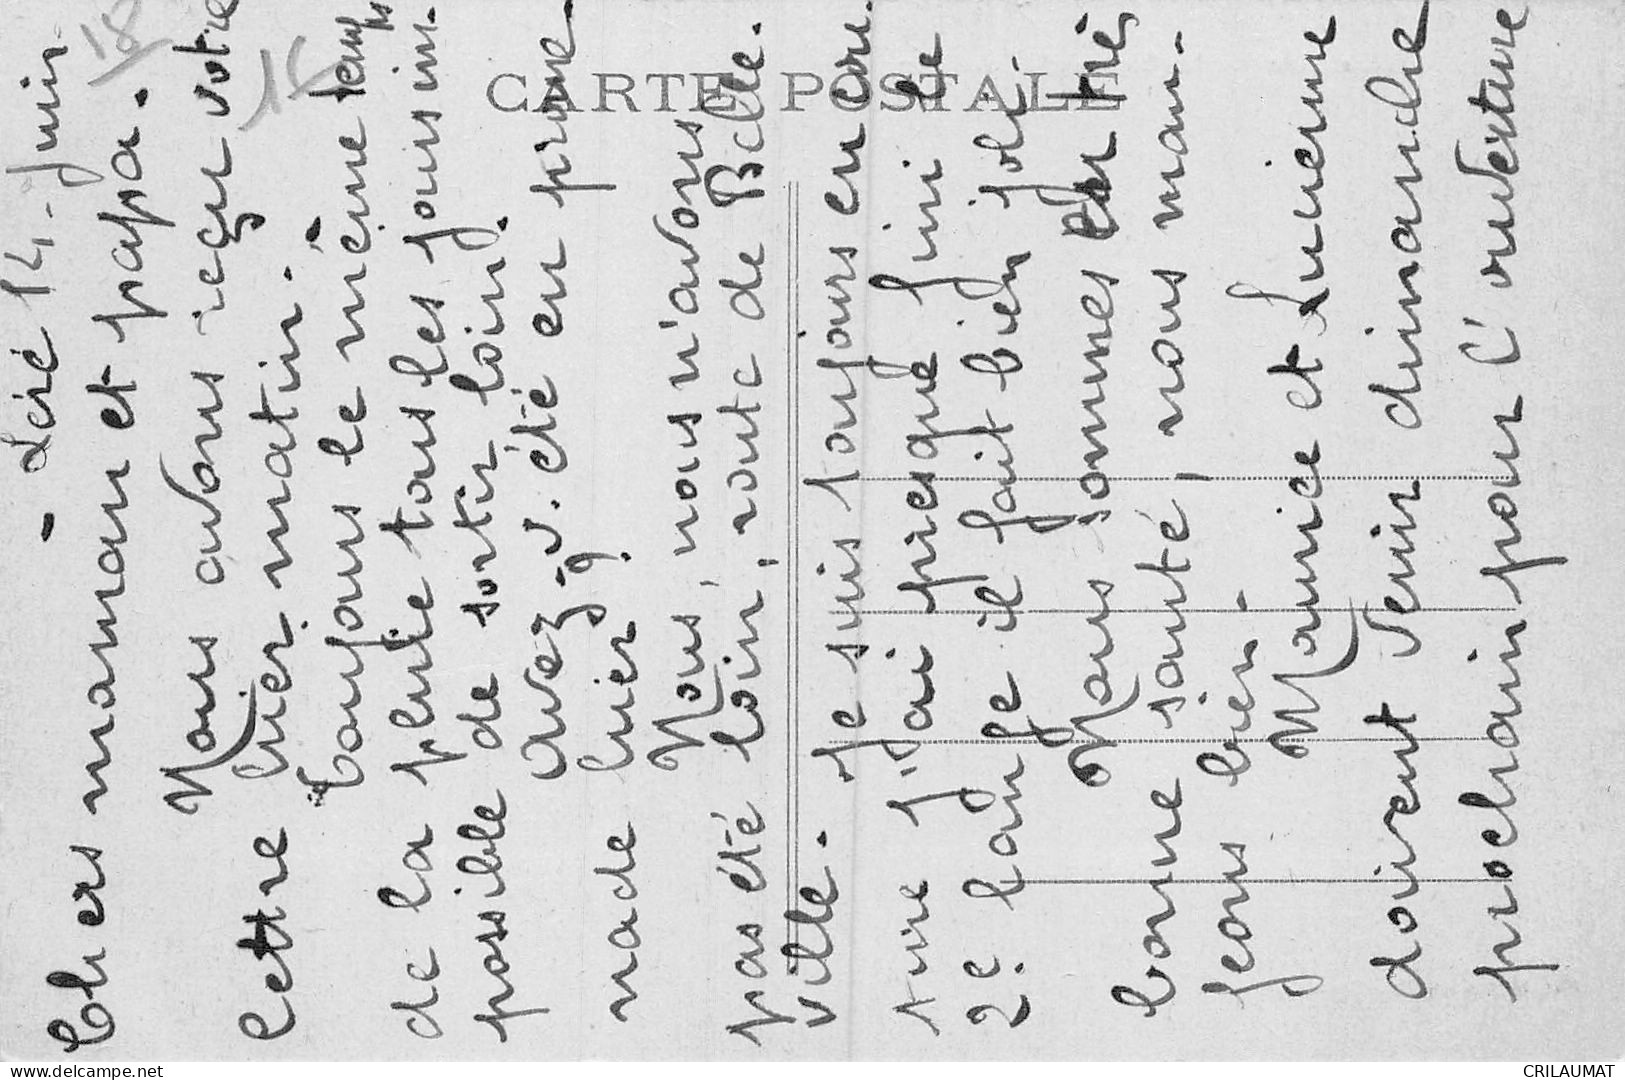 - Liré 14 - Juin
Chers maman et papa.
Nous avons reçu votre
lettre hier matin.
Toujours le même temps
de la pluie tous les jours im-
possible de sortir loin.
Avez-v. été en prome-
nade hier
Nous, nous n'avons
pas été loin, route de Belle-
ville. Je suis toujours en cou-
ture j'ai presque fini le
2e. lange il fait bien joli.
Nous sommes en très
bonne santé, nous man-
geons bien.
Maurice et Lucienne
doivent venir dimanche
prochain pour l'ouverture
CARTE POSTALE
delcampe.net
CRILAUMAT